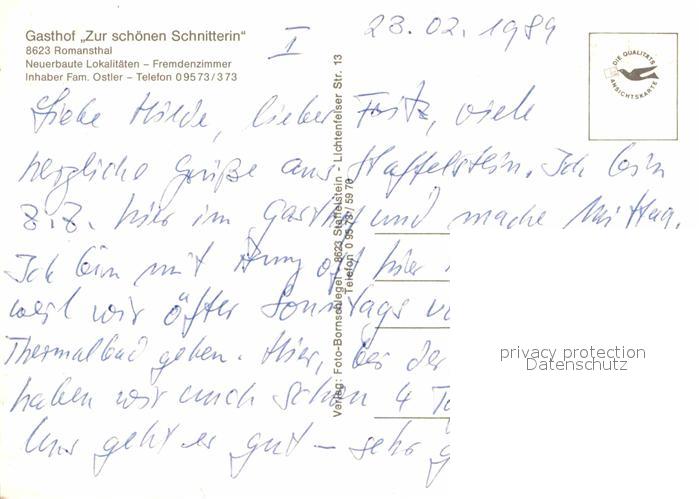 Gasthof „Zur schönen Schnitterin“
8623 Romansthal
Neuerbaute Lokalitäten – Fremdenzimmer
Inhaber Fam. Ostler – Telefon 0 95 73 / 3 73
I
23.02.1989
DIE QUALITÄTS
ANSICHTSKARTE
Liebe Hilde, lieber Fritz, viele
herzliche Grüße aus Staffelstein. Ich bin
z.Z. hier im Gasthof und mache Mittag.
Ich bin mit oft hier
weil wir öfter Sonntags
Thermalbad gehen. Hier, bei der
haben wir auch schon 4
Uns geht es gut – sehr
Verlag: Foto-Bornschlegel - 8623 Staffelstein - Lichtenfelser Str. 13
Telefon 0 95 73 / 59 70
privacy protection
Datenschutz